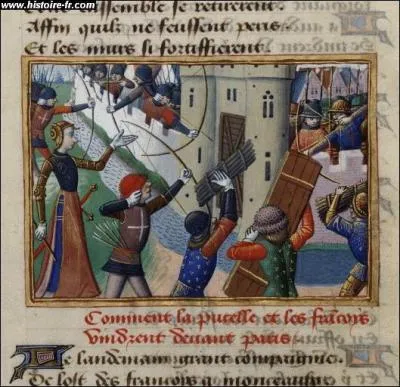 www.histoire-fr.com
assemble se retirerent
Affin quilz ne feussent peris
Et les murs si fortiffierent
Comment la pucelle et les francois
vindrent devant paris
Le landemain grant compaignie
De lost des francois a